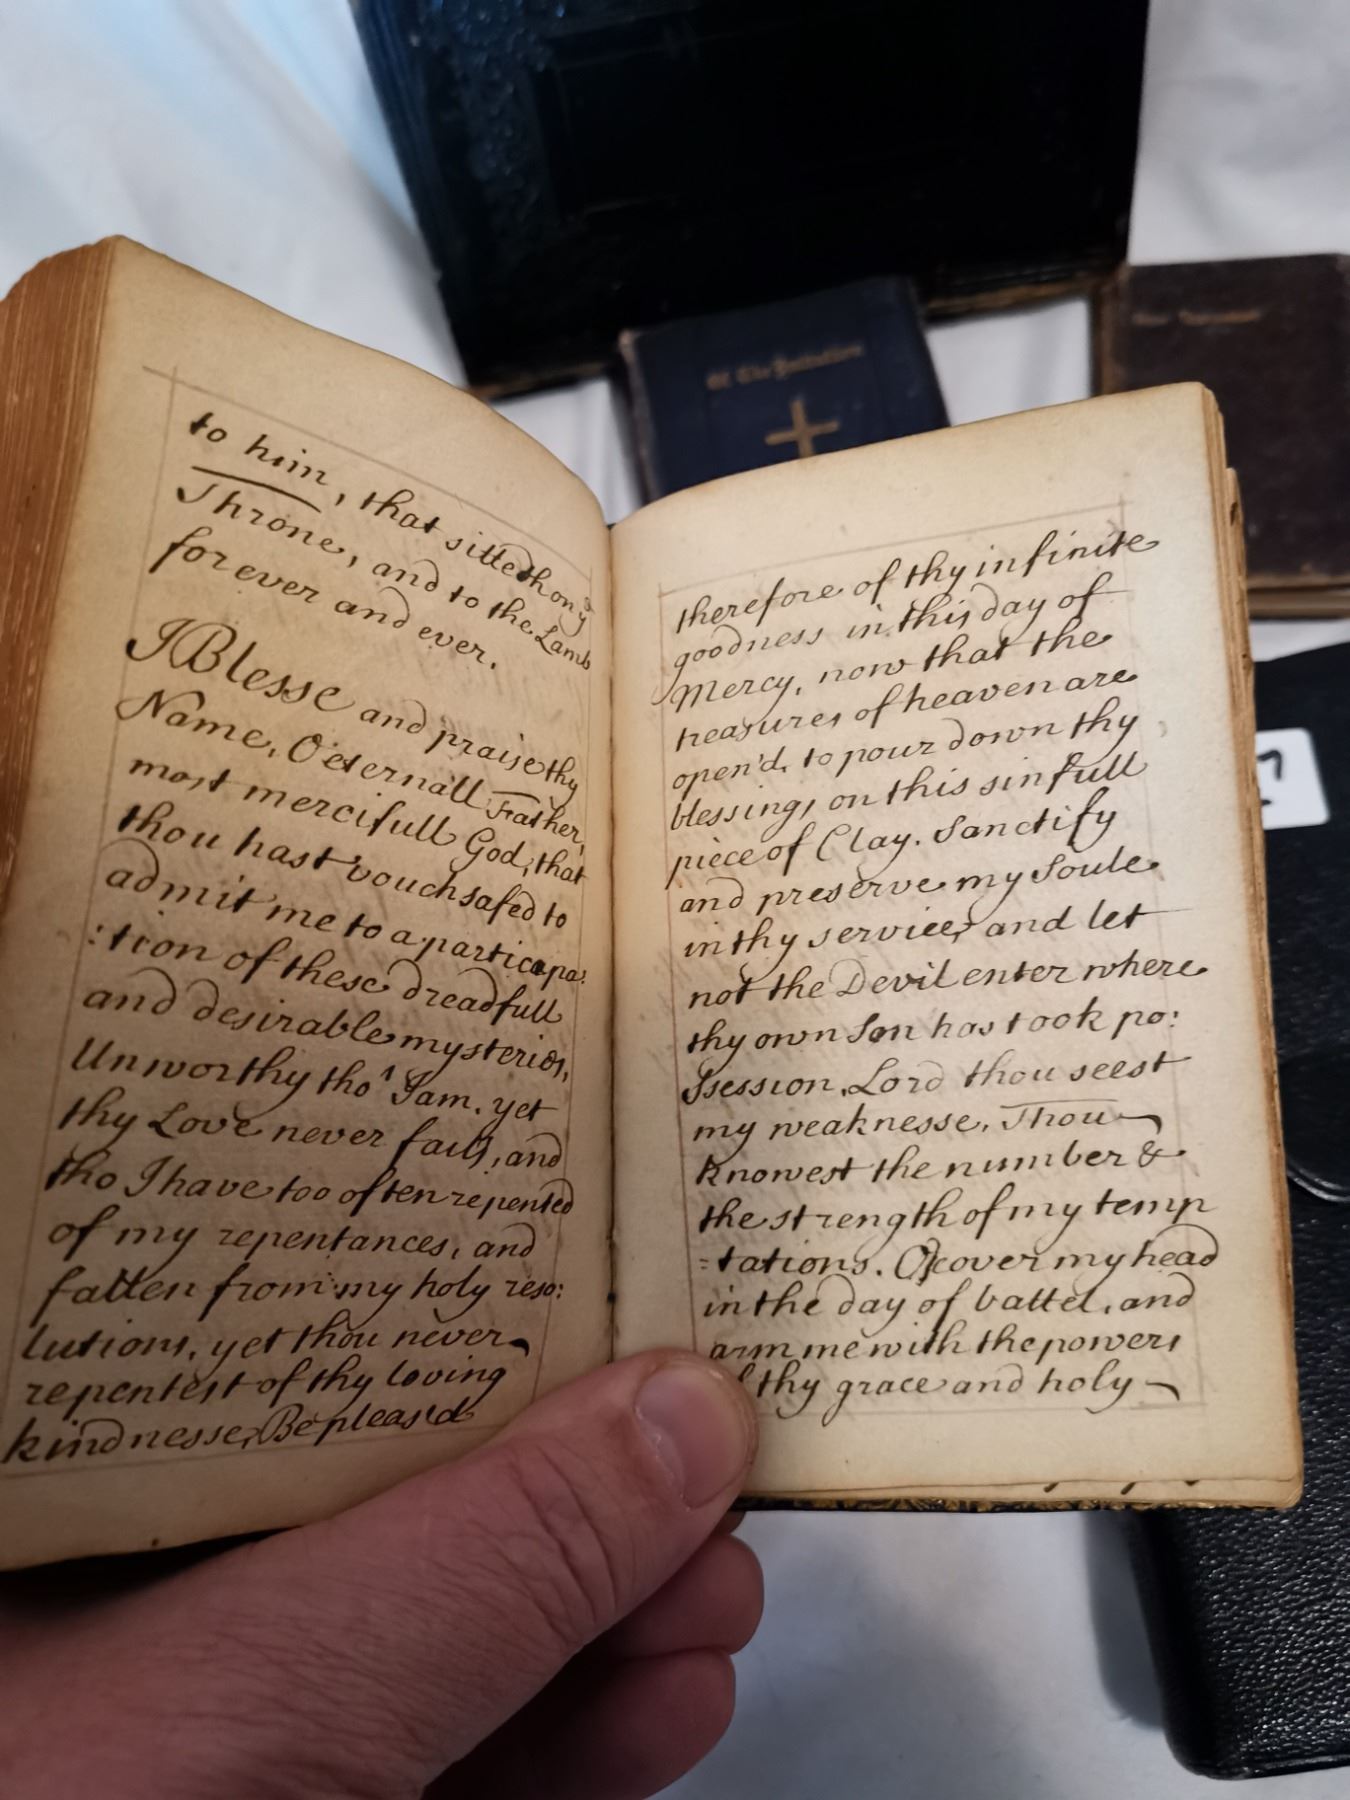 to him, that sitteth on yᵉ
Throne, and to the Lamb
for ever and ever.
I Blesse and praise thy
Name, O eternall Father,
most mercifull God, that
thou hast vouchsafed to
admit me to a participa:
:tion of these dreadfull
and desirable mysteries,
Unworthy tho' I am, yet
thy Love never fails, and
tho I have too often repented
of my repentances, and
fallen from my holy reso:
lutions, yet thou never
repentest of thy loving
kindnesse, Be pleas'd
therefore of thy infinite
goodness in this day of
Mercy, now that the
treasures of heaven are
open'd, to pour down thy
blessings on this sinfull
piece of Clay. Sanctify
and preserve my Soule
in thy service, and let
not the Devil enter where
thy own Son has took po:
ssession. Lord thou seest
my weaknesse. Thou
knowest the number &
the strength of my temp
=tations. O cover my head
in the day of battel, and
arm me with the powers
thy grace and holy
Of The
New Testament